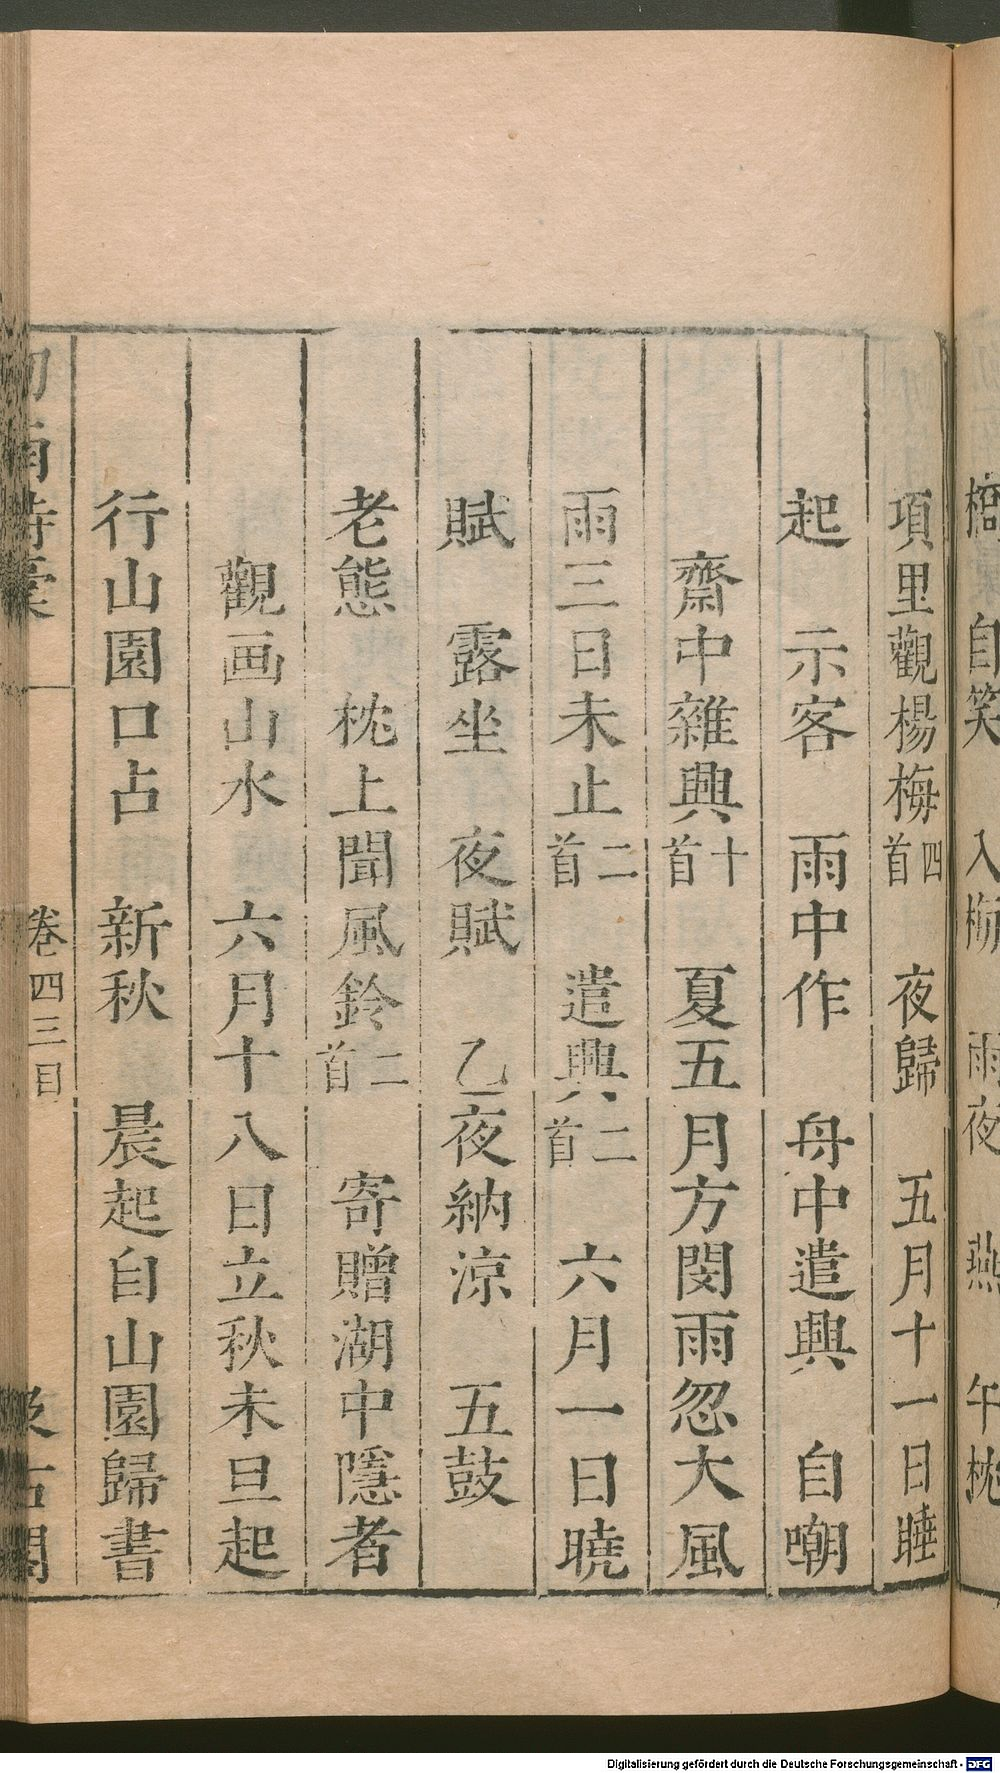 橋　自笑　入　雨夜　燕　午枕
項里觀楊梅四首　夜歸　五月十一日睡
起　示客　雨中作　舟中遣興　自嘲
齋中雜興十首　夏五月方閔雨忽大風
雨三日未止二首　遣興二首　六月一日曉
賦　露坐　夜賦　乙夜納涼　五鼓
老態　枕上聞風鈴二首　寄贈湖中隱者
觀画山水　六月十八日立秋未旦起
行山園口占　新秋　晨起自山園歸書
劍南詩稾　卷四三目　汲古閣
Digitalisierung gefördert durch die Deutsche Forschungsgemeinschaft - DFG